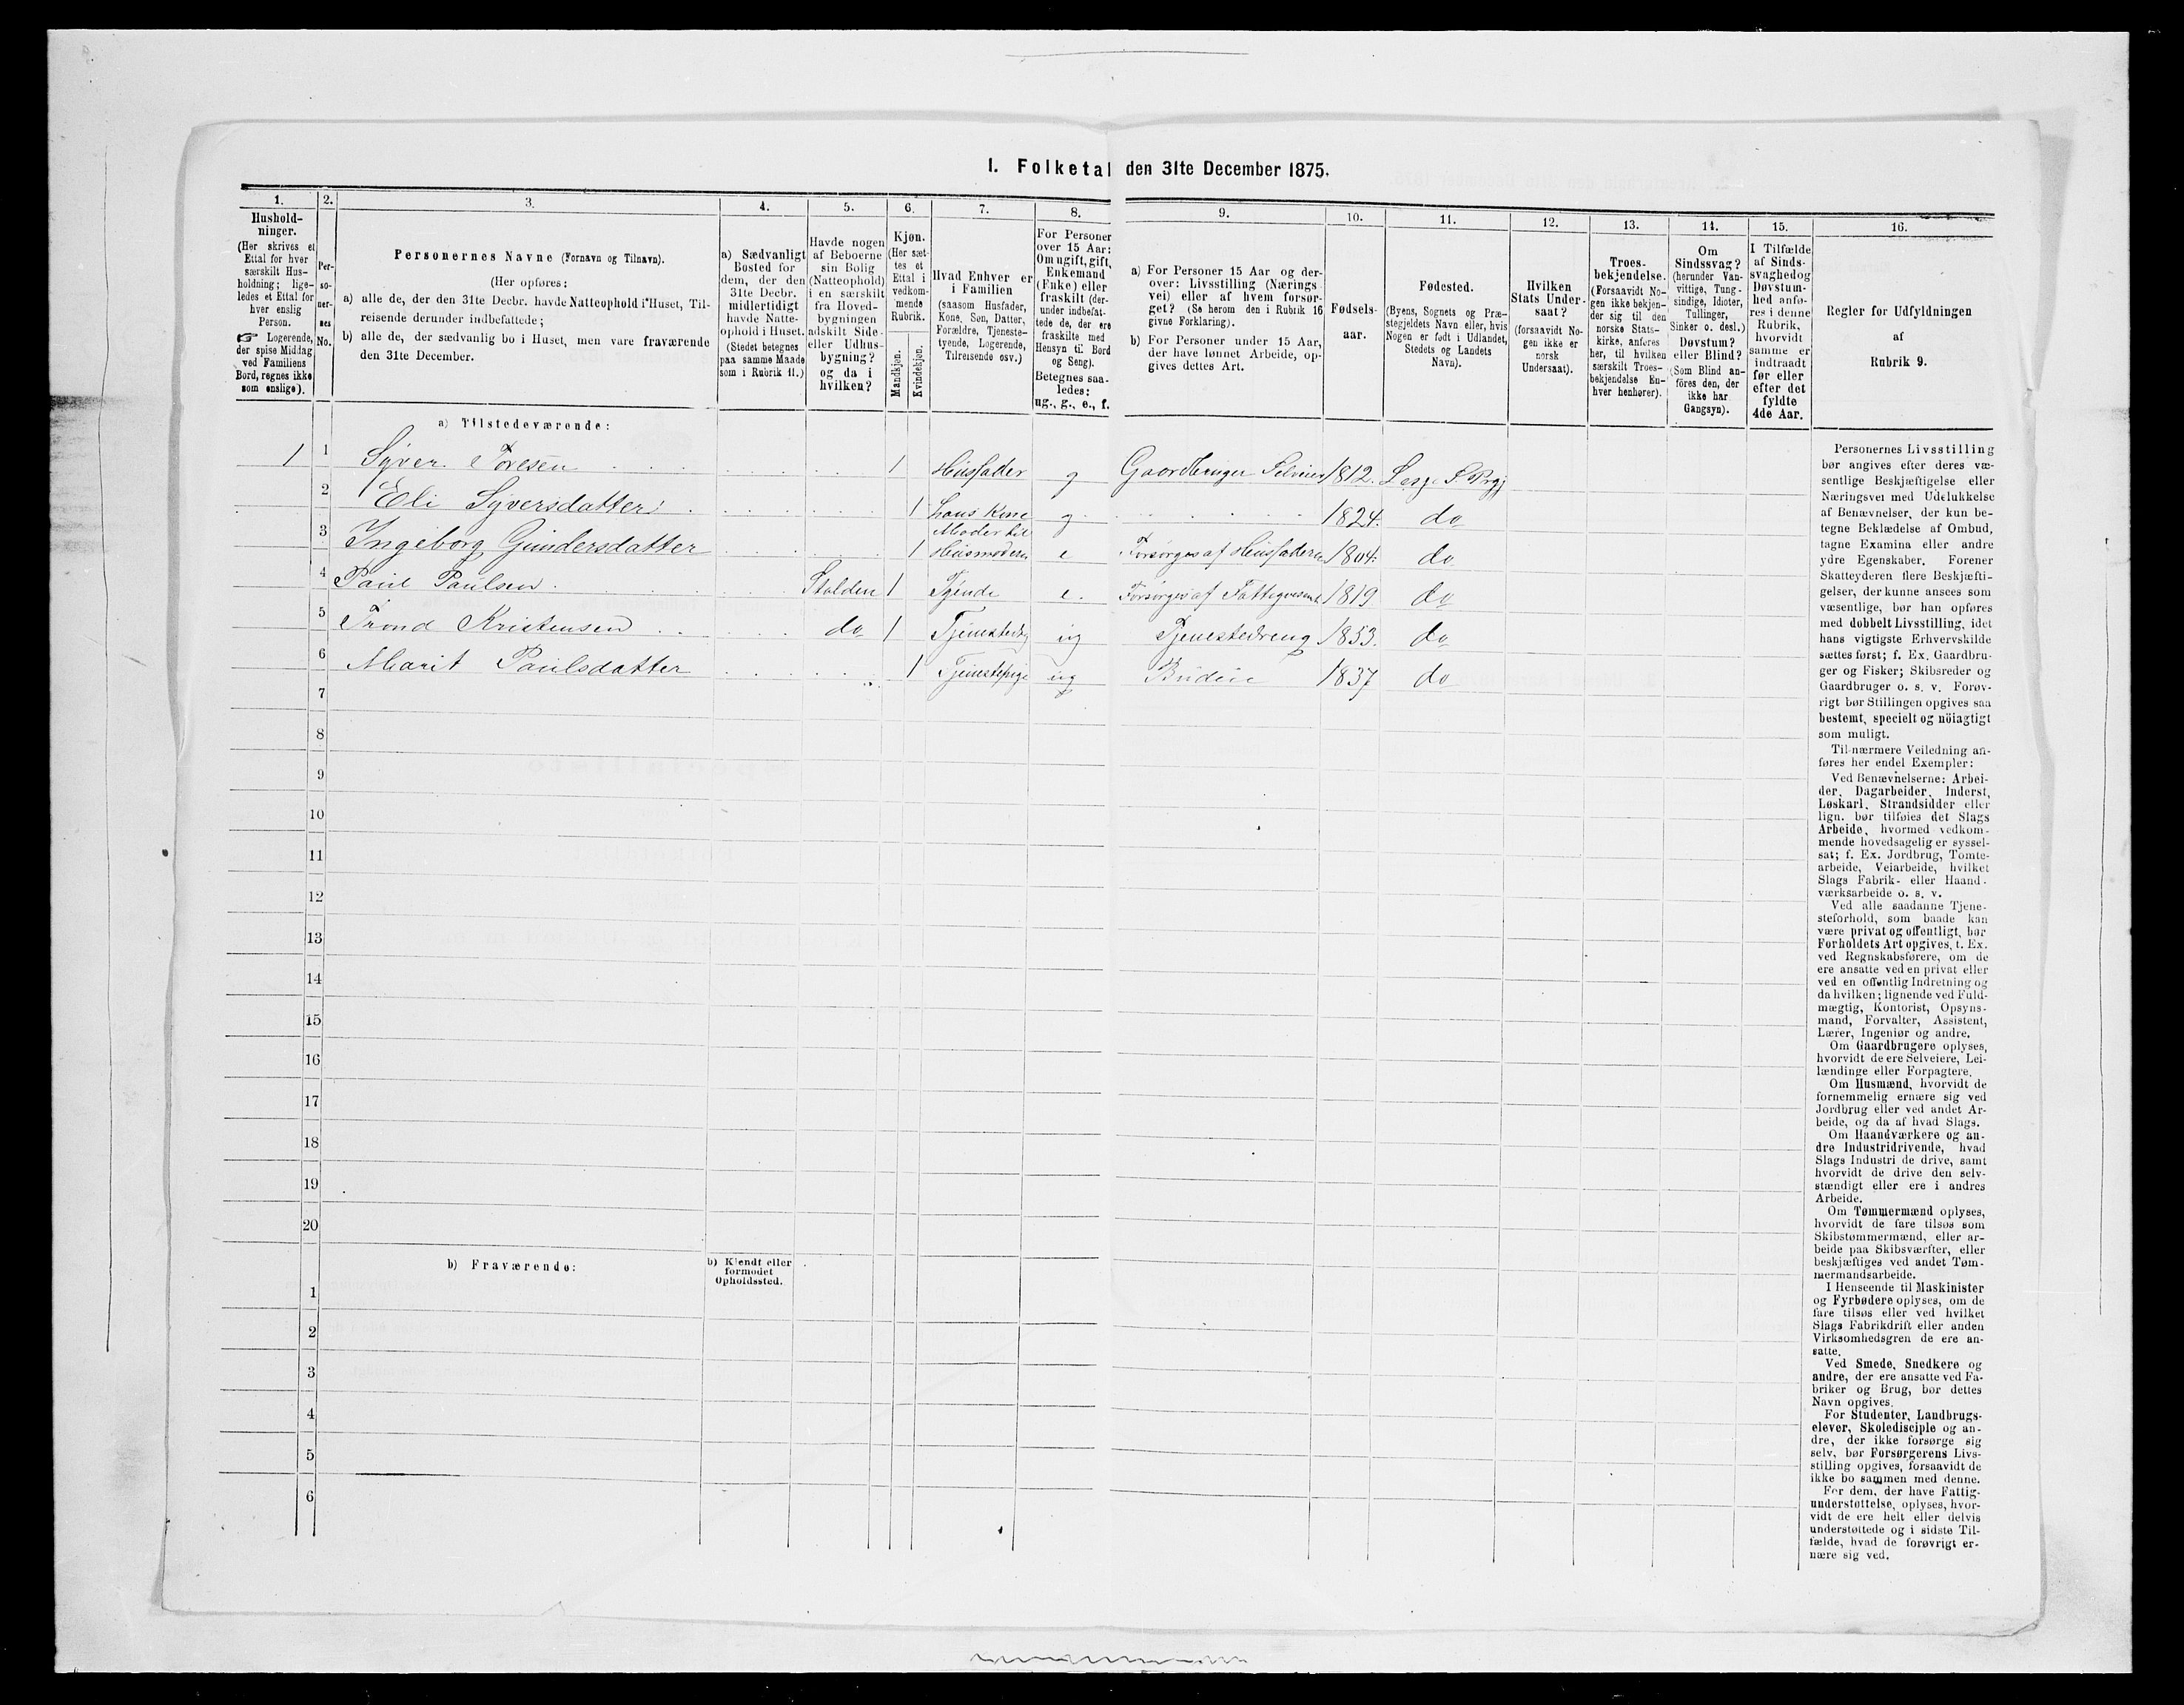 I. Folketal den 31te December 1875.
1.
Hushold-
ninger.
(Her skrives et
Ettal for hver
særskilt Hus-
holdning; lige-
ledes et Ettal for
hver enslig
Person.
☞ Logerende,
der spise Middag
ved Familiens
Bord, regnes ikke
som enslige).
2.
Per-
so-
ner-
nes
No.
3.
Personernes Navne (Fornavn og Tilnavn).
(Her opføres:
a) alle de, der den 31te Decbr. havde Natteophold i Huset, Til-
reisende derunder indbefattede;
b) alle de, der sædvanlig bo i Huset, men vare fraværende
den 31te December.
4.
a) Sædvanligt
Bosted for
dem, der den
31te Decbr.
midlertidigt
havde Natte-
ophold i Huset.
(Stedet betegnes
paa samme Maade
som i Rubrik 11.)
5.
Havde nogen
af Beboerne
sin Bolig
(Natteophold)
i en særskilt
fra Hoved-
bygningen
adskilt Side-
eller Udhus-
bygning?
og da i
hvilken?
6.
Kjøn.
(Her sæt-
tes et
Ettal i
vedkom-
mende
Rubrik.
Mandkjøn.
Kvindekjøn.
7.
Hvad Enhver er
i Familien
(saasom Husfader,
Kone, Søn, Datter,
Forældre, Tjeneste-
tyende, Logerende,
Tilreisende osv.)
8.
For Personer
over 15 Aar:
Om ugift, gift,
Enkemand
(Enke) eller
fraskilt (der-
under indbefat-
tede de, der ere
fraskilte med
Hensyn til Bord
og Seng).
Betegnes saa-
ledes:
ug., g., e., f.
9.
a) For Personer 15 Aar og der-
over: Livsstilling (Nærings-
vei) eller af hvem forsør-
get? (Se herom den i Rubrik 16
givne Forklaring).
b) For Personer under 15 Aar,
der have lønnet Arbeide, op-
gives dettes Art.
10.
Fødsels-
aar.
11.
Fødested.
(Byens, Sognets og Præ-
stegjeldets Navn eller, hvis
Nogen er født i Udlandet,
Stedets og Landets
Navn).
12.
Hvilken
Stats Under-
saat?
(forsaavidt No-
gen ikke er
norsk
Undersaat).
13.
Troes-
bekjendelse.
(Forsaavidt No-
gen ikke bekjen-
der sig til den
norske Stats-
kirke, anføres
her, til hvilken
særskilt Troes-
bekjendelse En-
hver henhører).
14.
Om
Sindssvag?
(herunder Van-
vittige, Tung-
sindige, Idioter,
Tullinger,
Sinker o. desl.)
Døvstum?
eller Blind?
(Som Blind an-
føres den, der
ikke har
Gangsyn).
15.
I Tilfælde
af Sinds-
svaghed og
Døvstum-
hed anfø-
res i denne
Rubrik,
hvorvidt
samme er
indtraadt
før eller
efter det
fyldte
4de Aar.
16.
Regler for Udfyldningen
af
Rubrik 9.
a) Tilstedeværende:
1 1 Syver Toresen 1 Husfader g Gaardbruger Selveier 1812. Lesje Prgj
2 Eli Syversdatter 1 hans Kone g 1824. do
3 Ingeborg Gundersdatter 1 Moder til Husmoderen e Forsørges af Husfaderen 1804. do
4 Paul Paulsen Stalden 1 Tyende e. Forsørges af Fattigvesenet 1819 do
5 Trond Kristensen do 1 Tjenestedrg ug Tjenestedreng 1853. do
6 Marit Paulsdatter 1 Tjenestepige ug Budeie 1837 do
7
8
9
10
11
12
13
14
15
16
17
18
19
20
b) Fraværende:
b) Kjendt eller
formodet
Opholdssted.
1
2
3
4
5
6
Personernes Livsstilling
bør angives efter deres væ-
sentlige Beskjæftigelse eller
Næringsvei med Udelukkelse
af Benævnelser, der kun be-
tegne Beklædelse af Ombud,
tagne Examina eller andre
ydre Egenskaber. Forener
Skatteyderen flere Beskjæfti-
gelser, der kunne ansees som
væsentlige, bør han opføres
med dobbelt Livsstilling, idet
hans vigtigste Erhvervskilde
sættes først; f. Ex. Gaardbru-
ger og Fisker; Skibsreder og
Gaardbruger o. s. v. Forøv-
rigt bør Stillingen opgives saa
bestemt, specielt og nöiagtigt
som muligt.
Til nærmere Veiledning an-
føres her endel Exempler:
Ved Benævnelserne: Arbei-
der, Dagarbeider, Inderst,
Løskarl, Strandsidder eller
lign. bør tilføies det Slags
Arbeide, hvormed vedkom-
mende hovedsagelig er syssel-
sat; f. Ex. Jordbrug, Tomte-
arbeide, Veiarbeide, hvilket
Slags Fabrik- eller Haand-
værksarbeide o. s. v.
Ved alle saadanne Tjene-
steforhold, som baade kan
være privat og offentligt, bør
Forholdets Art opgives, t. Ex.
ved Regnskabsførere, om de
ere ansatte ved en privat eller
ved en offentlig Indretning og
da hvilken; lignende ved Fuld-
mægtig, Kontorist, Opsyns-
mand, Forvalter, Assistent,
Lærer, Ingeniør og andre.
Om Gaardbrugere oplyses,
hvorvidt de ere Selveiere, Lei-
lændinge eller Forpagtere.
Om Husmænd, hvorvidt de
fornemmelig ernære sig ved
Jordbrug eller ved andet Ar-
beide, og da af hvad Slags.
Om Haandværkere og an-
dre Industridrivende, hvad
Slags Industri de drive, samt
hvorvidt de drive den selv-
stændigt eller ere i andres
Arbeide.
Om Tømmermænd oplyses,
hvorvidt de fare tilsøs som
Skibstømmermænd, eller ar-
beide paa Skibsværfter, eller
beskjæftiges ved andet Tøm-
mermandsarbeide.
I Henseende til Maskinister
og Fyrbødere oplyses, om de
fare tilsøs eller ved hvilket
Slags Fabrikdrift eller anden
Virksomhedsgren de ere an-
satte.
Ved Smede, Snedkere og
andre, der ere ansatte ved Fa-
briker og Brug, bør dettes
Navn opgives.
For Studenter, Landbrugs-
elever, Skoledisciple og an-
dre, der ikke forsørge sig
selv, bør Forsørgerens Livs-
stilling opgives, forsaavidt de
ikke bo sammen med denne.
For dem, der have Fattig-
understøttelse, oplyses, hvor-
vidt de ere helt eller delvis
understøttede og i sidste Til-
fælde, hvad de forøvrigt er-
nære sig ved.